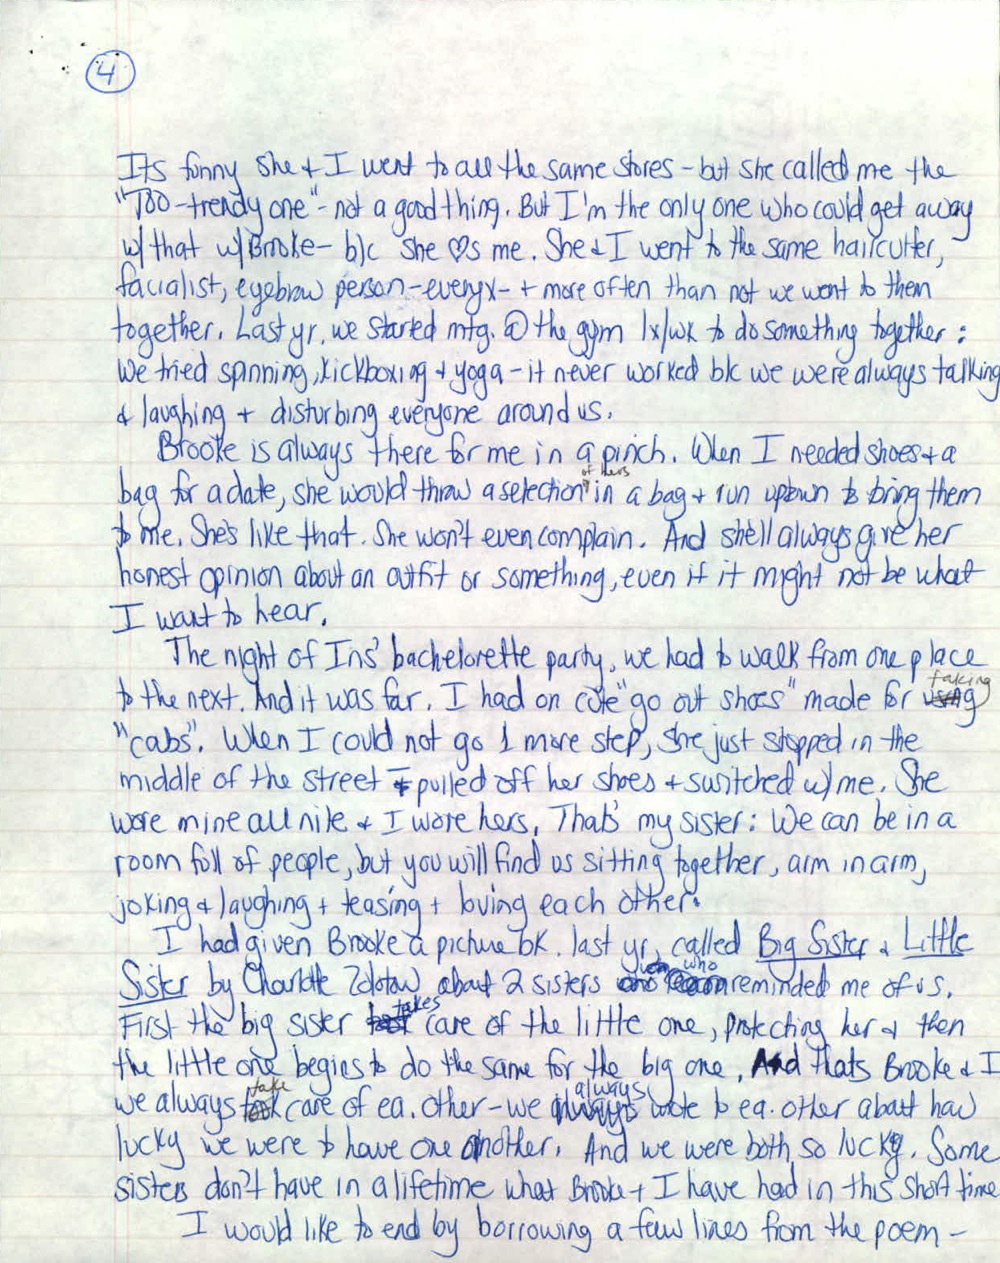 4
Its funny she + I went to all the same stores - but she called me the
"Too-trendy one" - not a good thing. But I'm the only one who could get away
w/ that w/ Brooke - b/c she ♡s me. She + I went to the same haircutter,
facialist, eyebrow person - everyx - + more often than not we went to them
together. Last yr. we started mtg. @ the gym 1x/wk to do something together:
We tried spinning, kickboxing + yoga - it never worked b/c we were always talking
+ laughing + disturbing everyone around us.
Brooke is always there for me in a pinch. When I needed shoes + a
of hers
bag for a date, she would throw a selection in a bag + run uptown to bring them
to me. She's like that. She won't even complain. And she'll always give her
honest opinion about an outfit or something, even if it might not be what
I want to hear.
The night of Ins' bachelorette party, we had to walk from one place
taking
to the next. And it was far. I had on cute "go out shoes" made for using
"cabs". When I could not go 1 more step, she just stopped in the
middle of the street + pulled off her shoes + switched w/ me. She
wore mine all nite + I wore hers. That's my sister: We can be in a
room full of people, but you will find us sitting together, arm in arm,
joking + laughing + teasing + loving each other.
I had given Brooke a picture bk. last yr, called Big Sister + Little
who
Sister by Charlotte Zolotow about 2 sisters reminded me of us.
takes
First the big sister care of the little one, protecting her + then
the little one begins to do the same for the big one. And thats Brooke + I
take always
we always took care of ea. other - we always wrote to ea. other about how
lucky we were to have one another. And we were both so lucky. Some
sisters don't have in a lifetime what Brooke + I have had in this short time
I would like to end by borrowing a few lines from the poem -